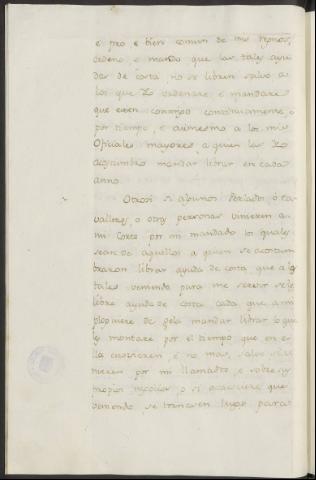 e pro, e bien comun de mis Regnos,
ordeno, e mando que las tales ayu
das de costa no se libren salvo a
los que Yo ordenare, e mandare
que esten conmigo continuamente, o
por tiempo, e asimesmo a los mis
Oficiales mayores, a quien las Yo
acostumbro mandar librar en cada
anno.
Otrosi si algunos Perlados, o Ca
valleros, o otras personas vinieren a
mi Corte por mi mandado los quales
sean de aquellos a quien se acostum
braron librar ayuda de costa, que a los
tales veniendo para me servir se les
libre ayuda de costa cada que a mi
ploguiere de gela mandar librar lo que
les montare por el tiempo que en e
lla estovieren, e no mas, salvo si vi
nieren por mi llamados, e sobre sus
propios negocios, o si acaesciere que
veniendo se tornasen luego para